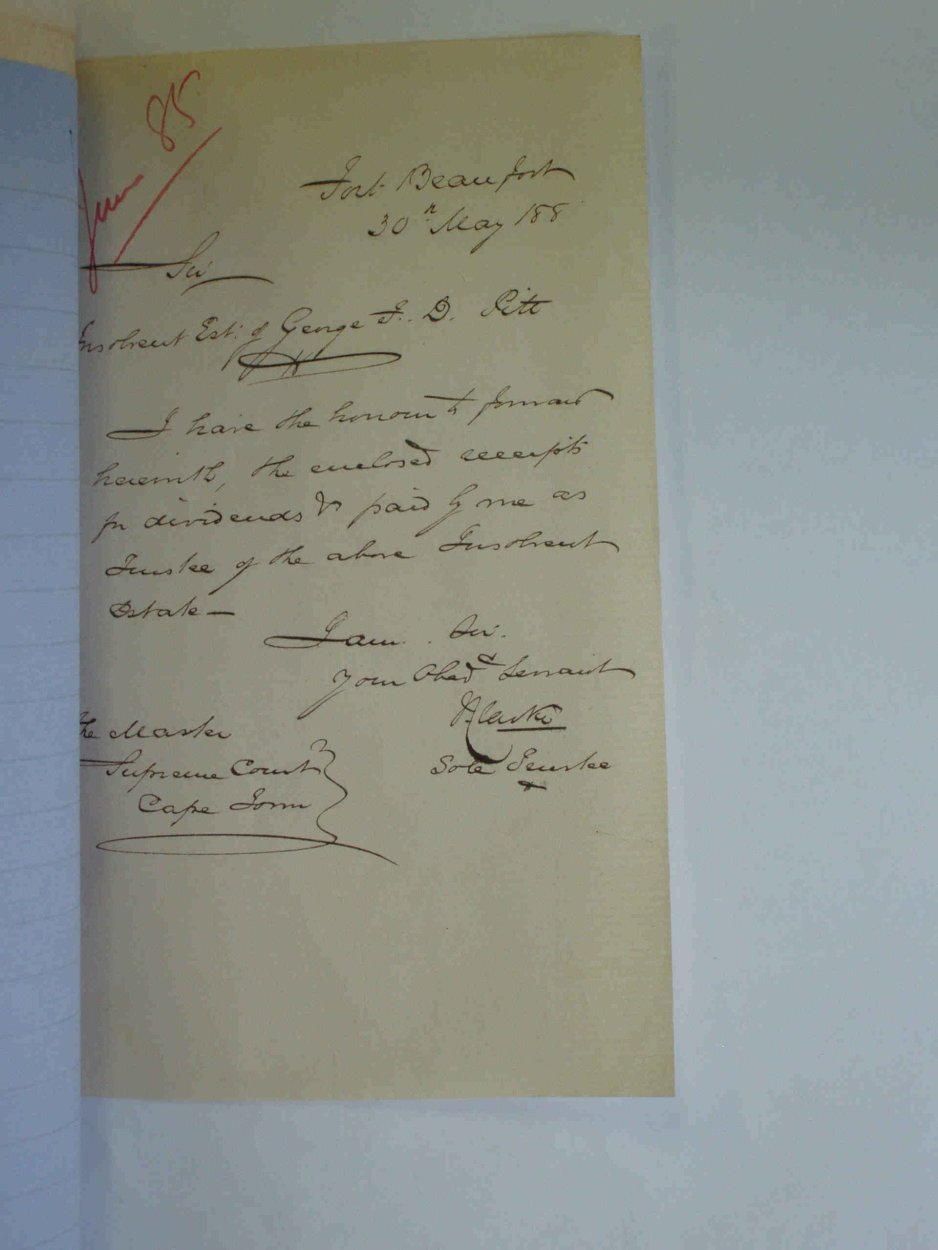 June 85
Fort Beaufort
30th May 188
Sir
Insolvent Est: of George F. D. Pitt
I have the honour to forward
herewith, the enclosed receipts
for dividends &c paid by me as
Trustee of the above Insolvent
Estate —
I am. Sir.
Your Obed^t Servant
Sole Trustee
The Master
Supreme Court
Cape Town